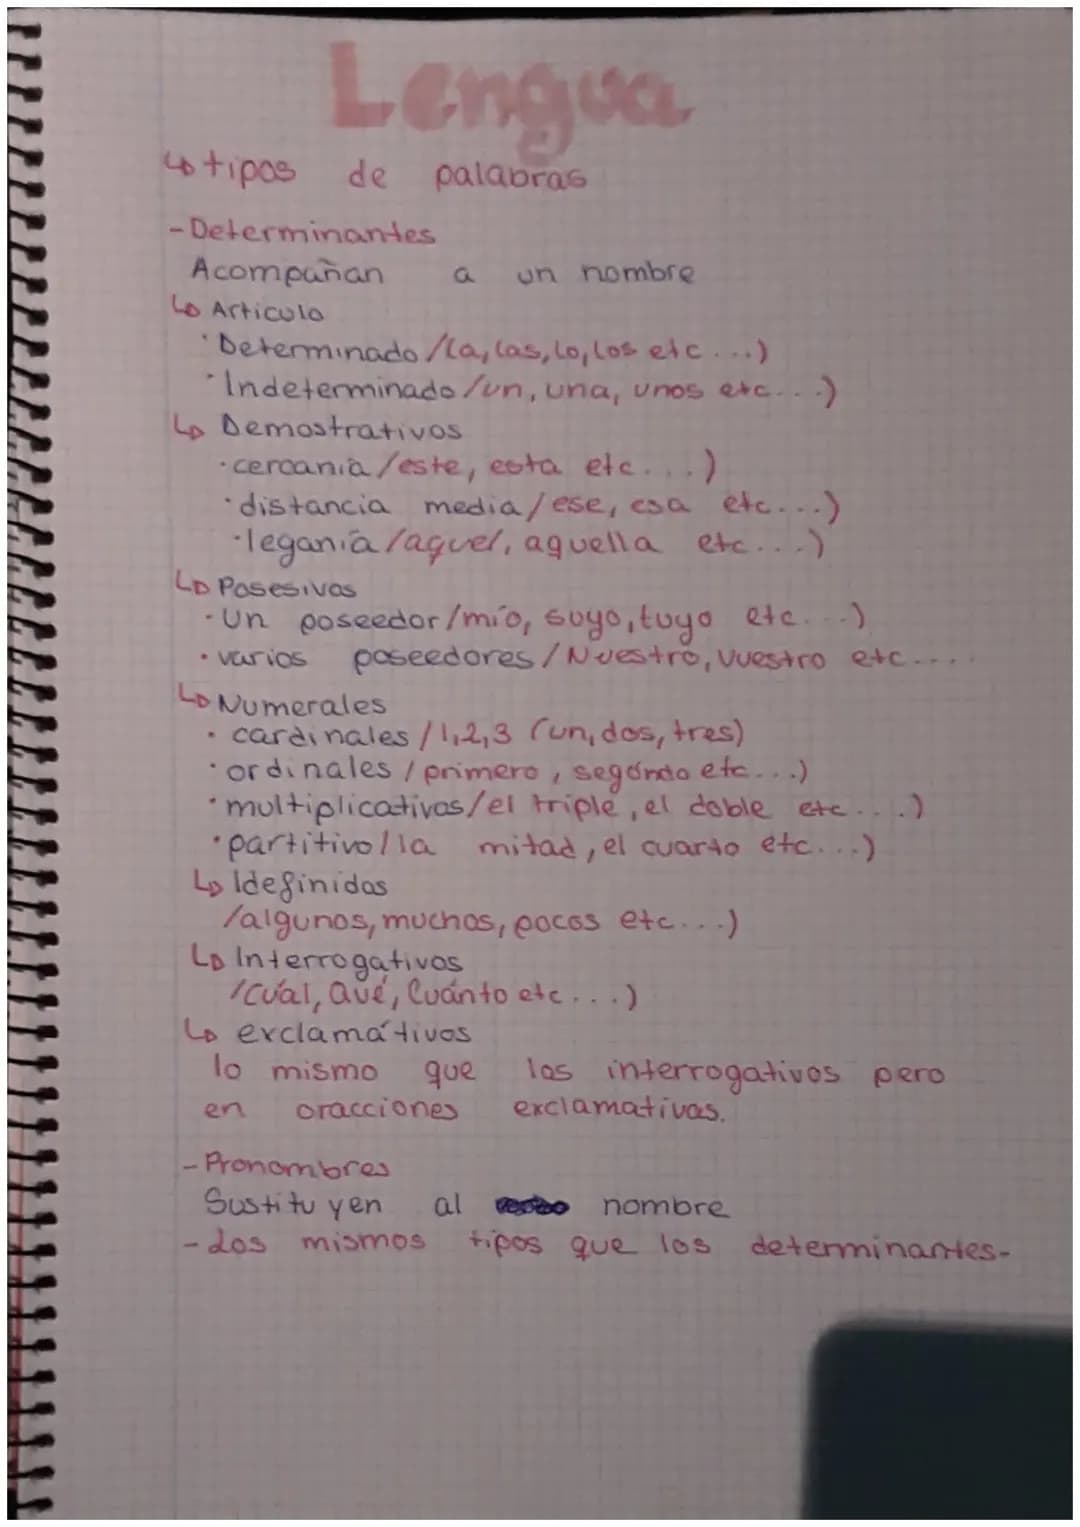 Lengua
↳ tipos de palabras
- Determinantes
Acompañan a un nombre
↳ Articulo
· Determinado /la, las, lo, los etc...)
· Indeterminado /un, una, unos etc...)
↳ Demostrativos
· cercanía /este, esta etc....)
· distancia media /ese, esa etc....)
· leganía /aquel, aquella etc....)
↳ Posesivos
· Un poseedor /mío, suyo, tuyo etc....)
· varios poseedores / Nuestro, vuestro etc....
↳ Numerales
· cardinales / 1, 2, 3 (un, dos, tres)
· ordinales / primero, segóndo etc....)
· multiplicativos /el triple, el doble etc....)
· partitivo / la mitad, el cuarto etc....)
↳ Idefinidos
/algunos, muchos, pocos etc....)
↳ Interrogativos
/Cuál, Qué, Cuánto etc....)
↳ exclamátivos
lo mismo que los interrogativos pero
en oracciones exclamativas.
- Pronombres
Sustituyen al nombre
- Los mismos tipos que los determinantes-